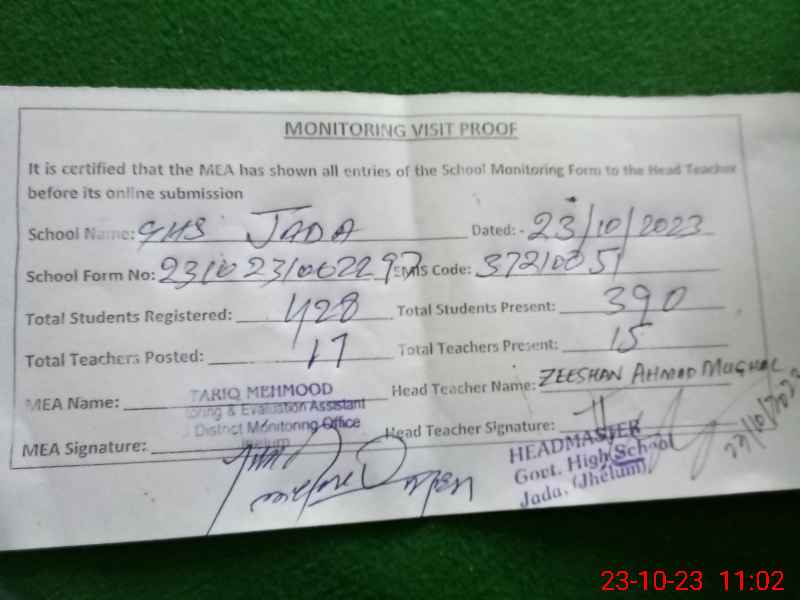 MONITORING VISIT PROOF
It is certified that the MEA has shown all entries of the School Monitoring Form to the Head Teacher
before its online submission
School Name: GHS JADA Dated: - 23/10/2023
School Form No: EMIS Code: 37210051
Total Students Registered: 428 Total Students Present: 390
Total Teachers Posted: 17 Total Teachers Present: 15
MEA Name: TARIQ MEHMOOD Head Teacher Name: ZEESHAN AHMAD MUGHAL
oring & Evaluation Assistant
District Monitoring Office
Jhelum
MEA Signature: Head Teacher Signature:
23/10/2023
HEADMASTER
Govt. High School
Jada, (Jhelum)
23-10-23 11:02